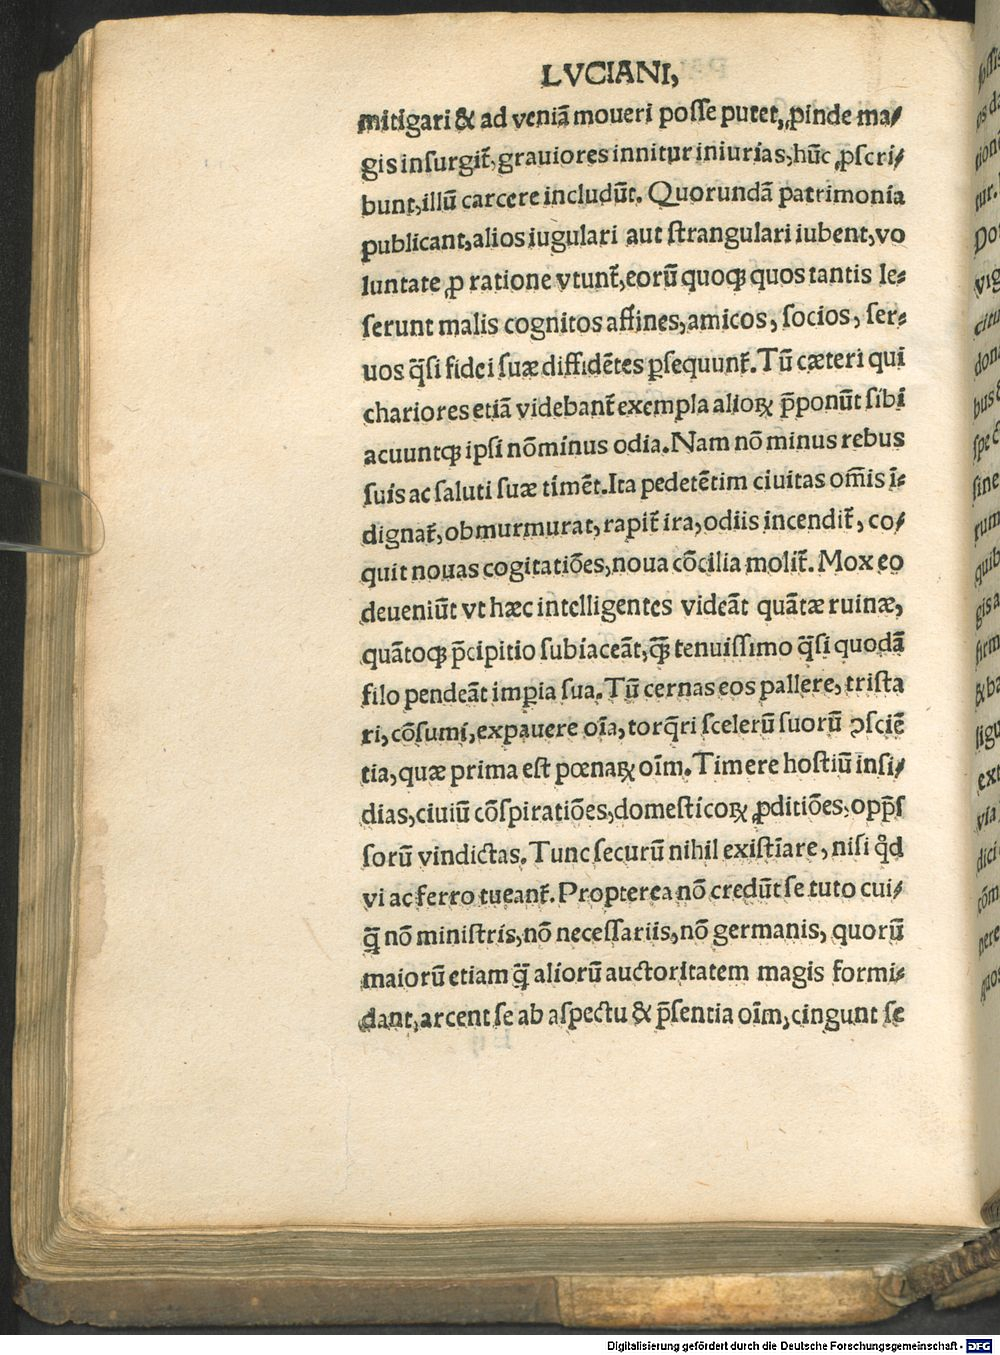 LVCIANI,
mitigari & ad veniā moueri posse putet, ꝓinde ma/
gis insurgit̃, grauiores innitur iniurias, hūc ꝓscri/
bunt, illū carcere includūt. Quorundā patrimonia
publicant, alios iugulari aut strangulari iubent, vo
luntate ꝓ ratione vtunt̃, eorū quoqꝫ quos tantis le-
serunt malis cognitos affines, amicos, socios, ser-
uos q̃si fidei suæ diffidētes ꝑsequunt̃. Tū cæteri qui
chariores etiā videbant̃ exempla alioꝝ p̄ponūt sibi
acuuntqꝫ ipsi nōminus odia. Nam nō minus rebus
suis ac saluti suæ timēt. Ita pedetētim ciuitas om̄is ī-
dignat̃, obmurmurat, rapit̃ ira, odiis incendit̃, co/
quit nouas cogitatiōes, noua cōcilia molit̃. Mox eo
deueniūt vt hæc intelligentes videāt quātæ ruinæ,
quātoqꝫ p̄cipitio subiaceāt, qꝫ̄ tenuissimo q̃si quodā
filo pendeāt imꝑia sua. Tū cernas eos pallere, trista
ri, cōsumi, expauere oīa, torq̄ri scelerū suorū ꝯsciē
tia, quæ prima est pœnaꝝ oīm. Timere hostiū insi/
dias, ciuiū cōspiratiōes, domesticoꝝ ꝓditiōes, opp̄s
sorū vindictas. Tunc securū nihil existīare, nisi qd̄
vi ac ferro tueant̃. Propterea nō credūt se tuto cui/
q̄ nō ministris, nō necessariis, nō germanis, quorū
maiorū etiam q̄ aliorū auctoritatem magis formi-
dant, arcent se ab aspectu & p̄sentia oīm, cingunt se
Digitalisierung gefördert durch die Deutsche Forschungsgemeinschaft - DFG